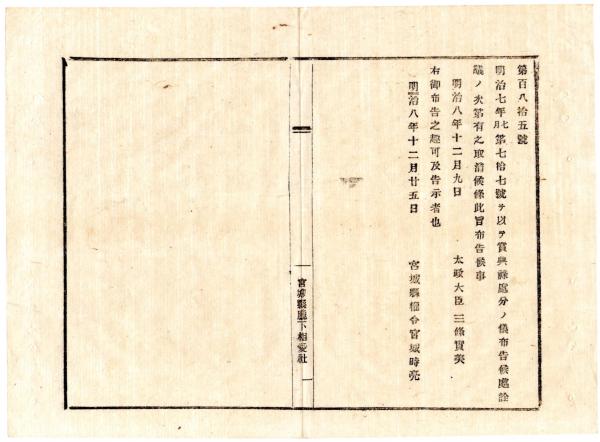 第百八拾五號
明治七年七月第七拾七號ヲ以テ賞典祿處分ノ儀布告候處詮
議ノ次第有之取消候條此旨布告候事
明治八年十二月九日
太政大臣三條實美
右御布告之趣可及告示者也
明治八年十二月廿五日
宮城縣權令宮城時亮
宮城縣廳下相愛社